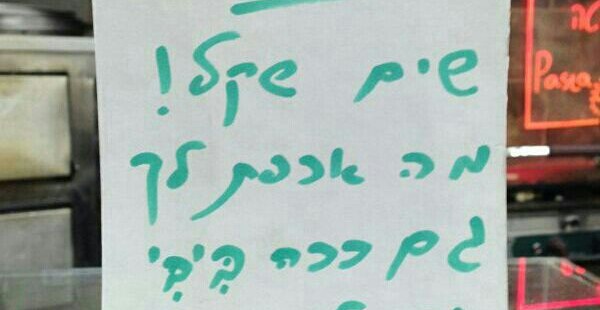 שים שקל!
מה אכפת לך
גם ככה בִּיבִּי
Pasta